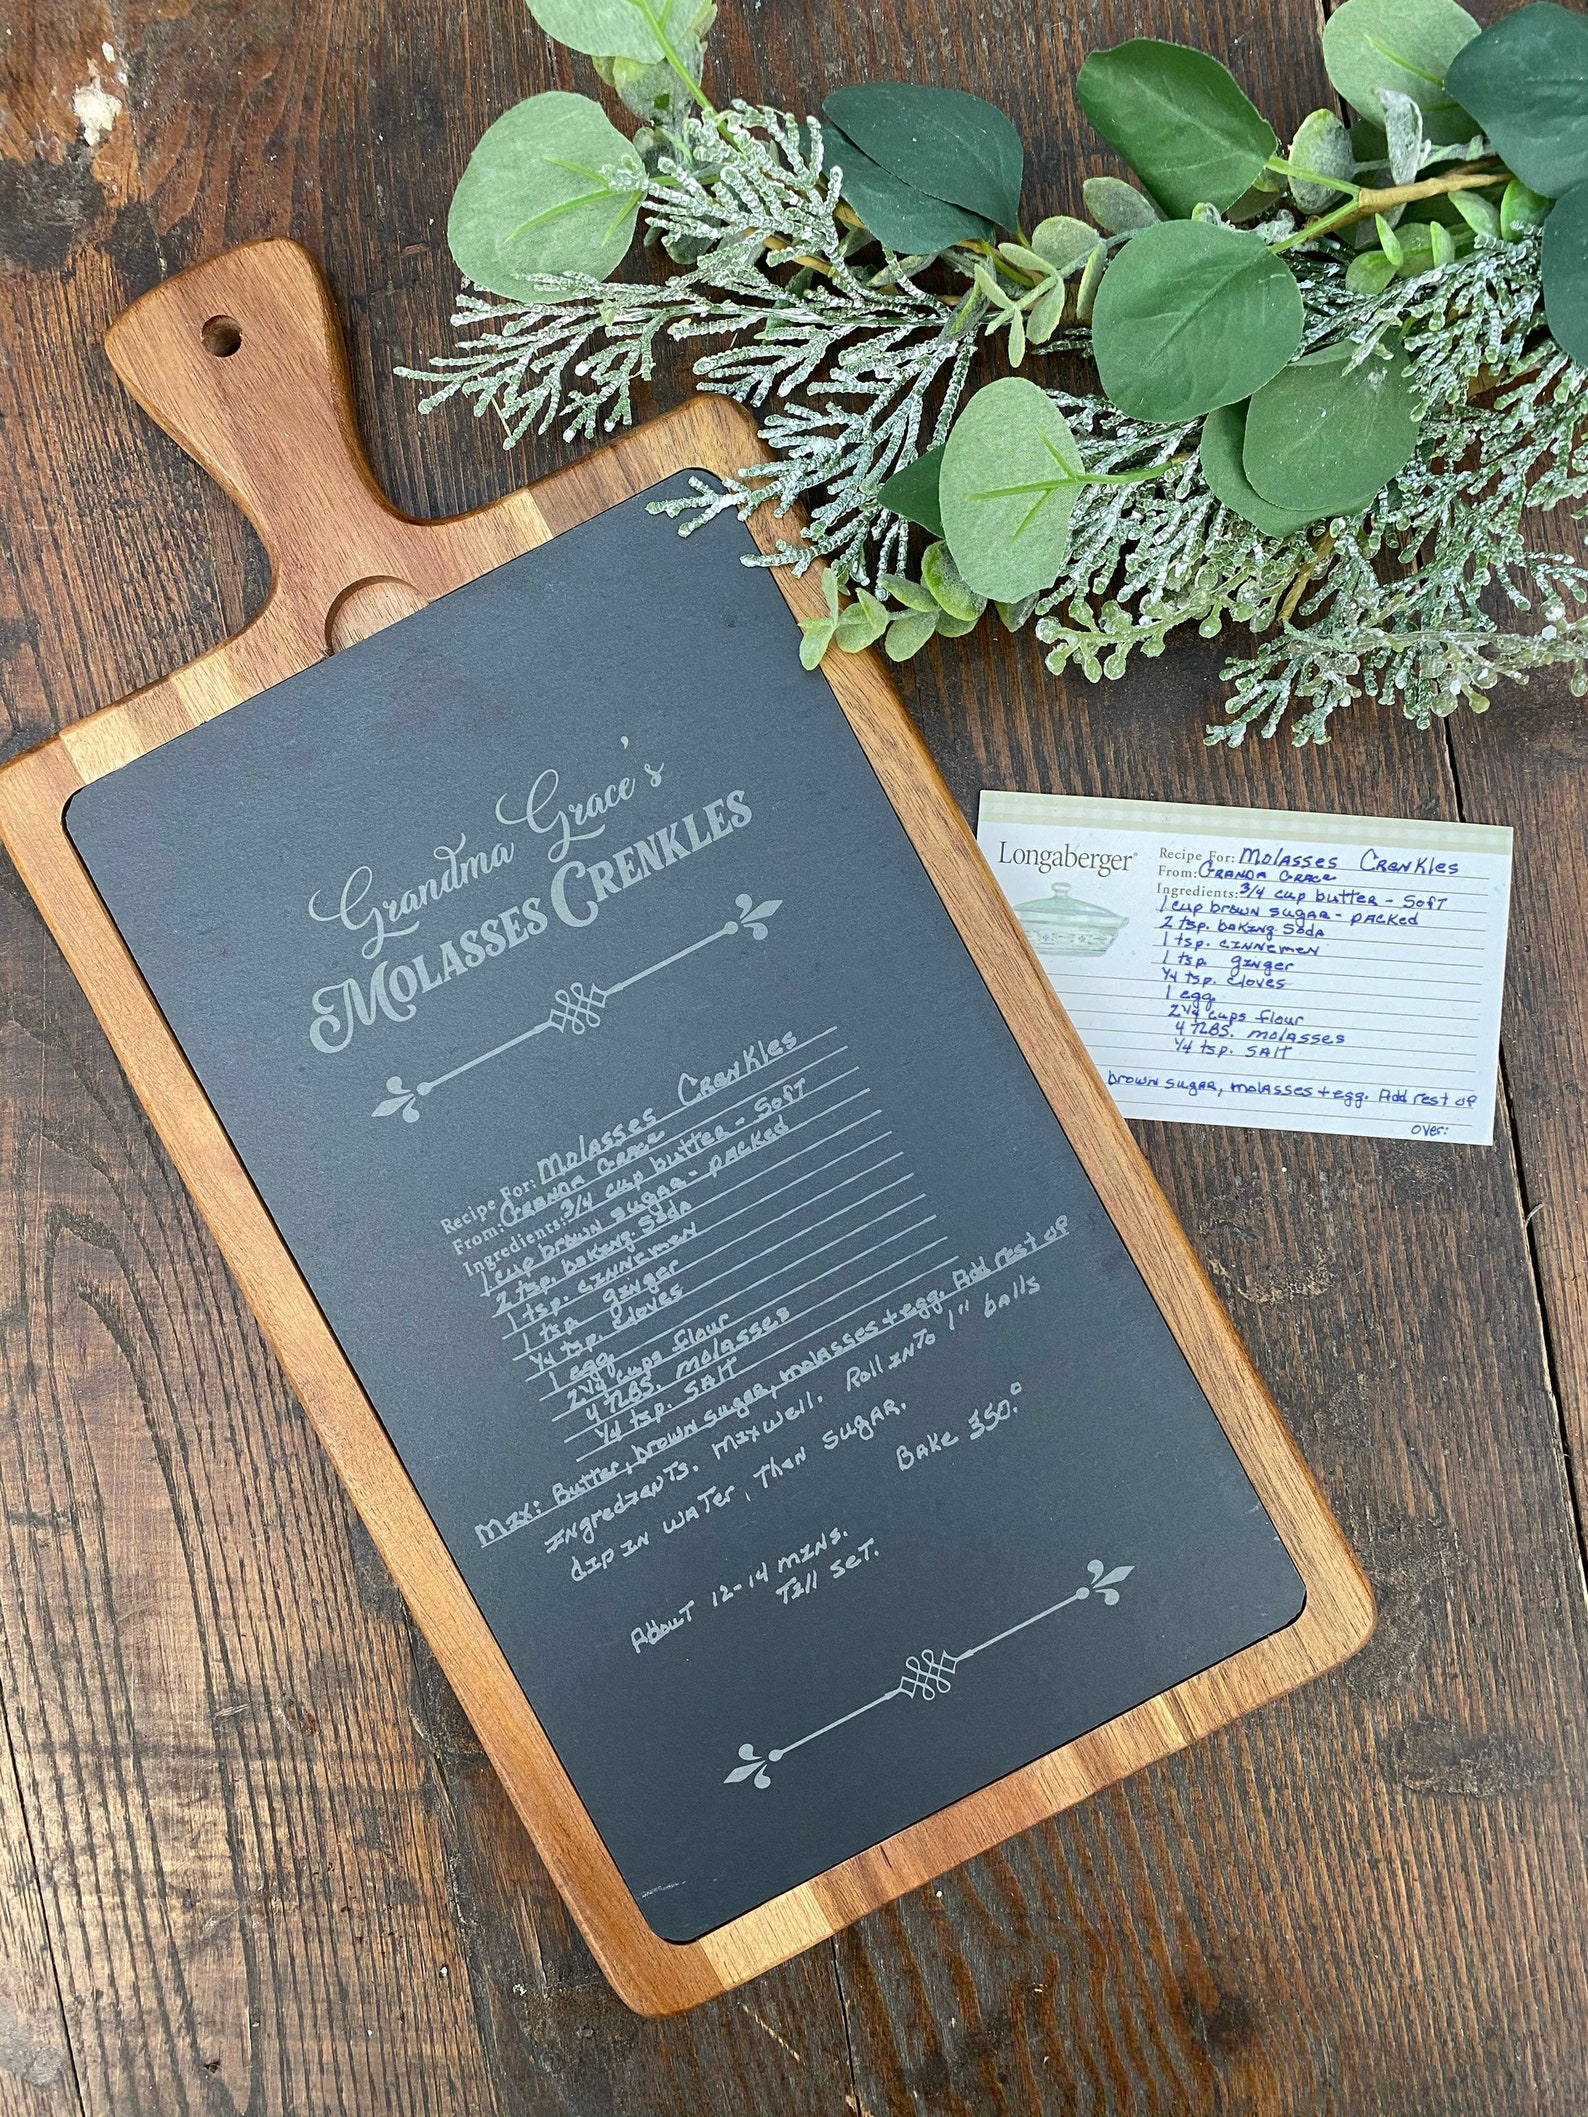 Grandma Grace's
MOLASSES CRENKLES
Recipe For: Molasses Crenkles
From: Granda Grace
Ingredients: 3/4 cup butter - Soft
1 cup brown sugar - packed
2 tsp. baking Soda
1 tsp. cinnemen
1 tsp ginger
1/4 tsp. cloves
1 egg
2 1/4 cups flour
4 TLBS. molasses
1/4 tsp. SAlt
Mix: Butter, brown sugar, molasses + egg. Add rest of
Ingredients. Mix well. Roll into 1" balls
dip in water, then sugar.
Bake 350.°
About 12-14 mins.
Till set.
Longaberger®
Recipe For: Molasses Crenkles
From: Granda Grace
Ingredients: 3/4 cup butter - Soft
1 cup brown sugar - packed
2 tsp. baking Soda
1 tsp. cinnemen
1 tsp ginger
1/4 tsp. cloves
1 egg
2 1/4 cups flour
4 TLBS. molasses
1/4 tsp. SAlt
brown sugar, molasses + egg. Add rest of
over: